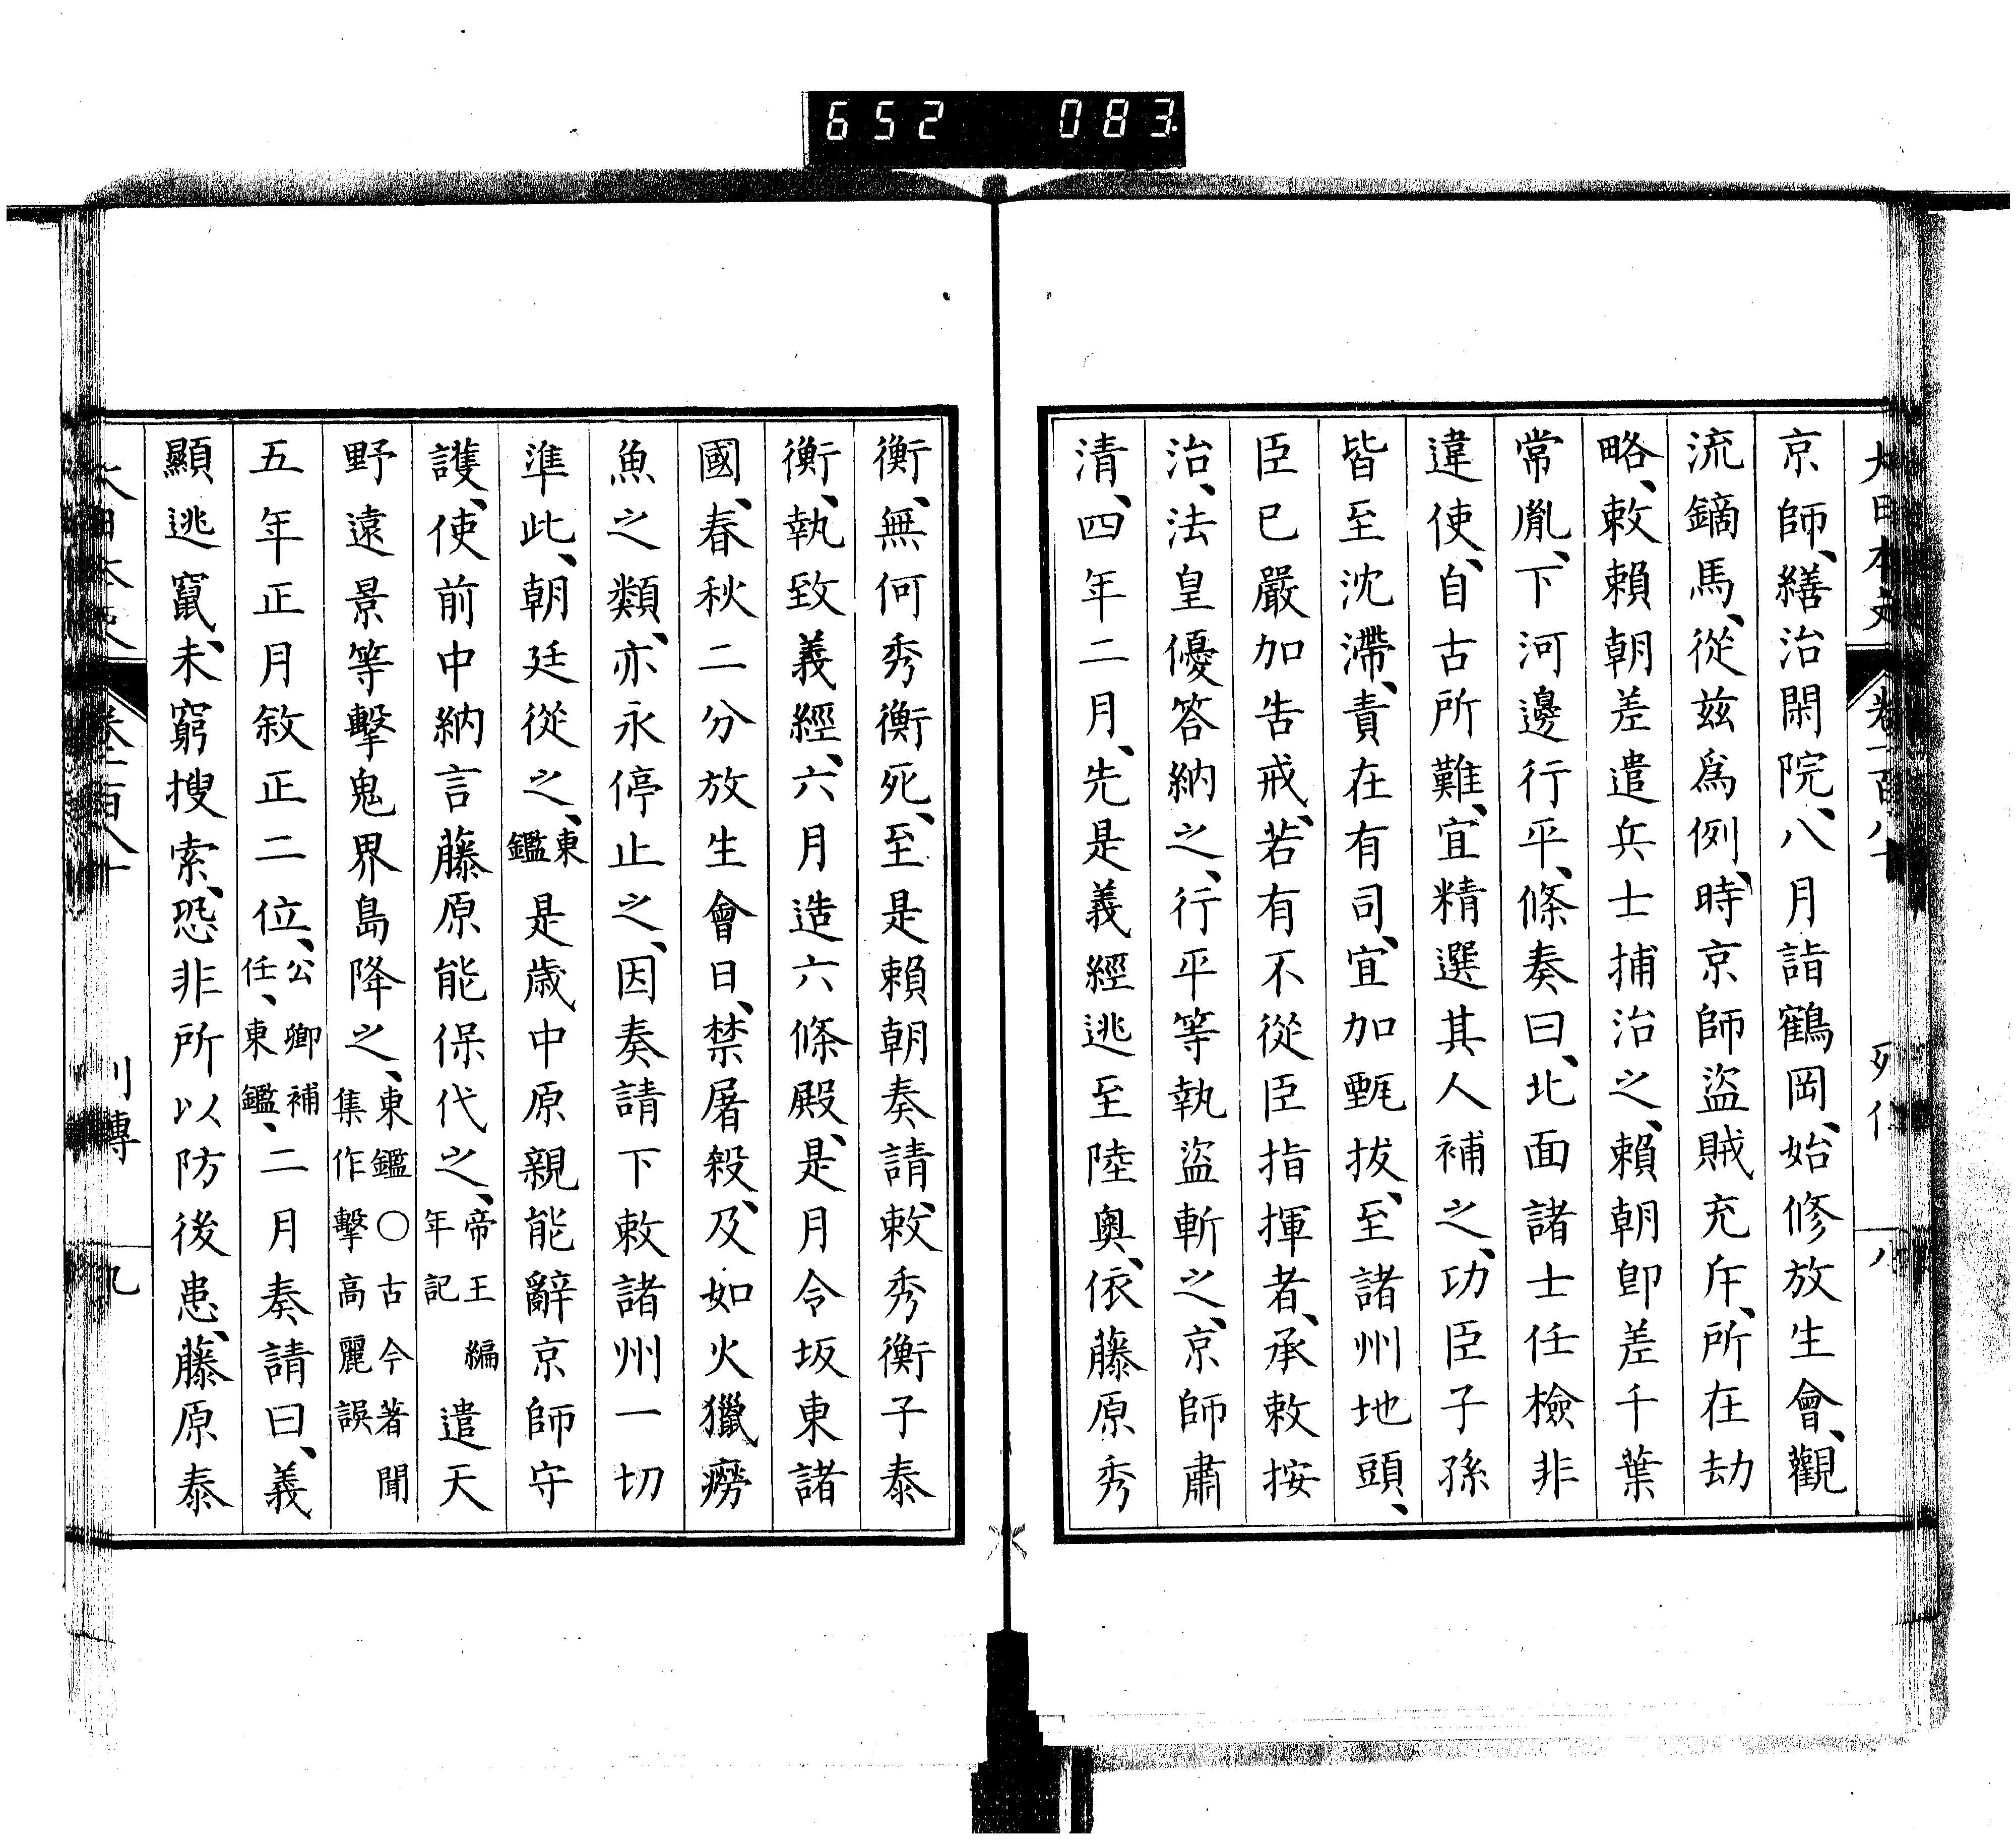 652 083
京師、繕治閑院、八月詣鶴岡、始修放生會、觀
流鏑馬、從兹爲例、時京師盜賊充斥、所在劫
略、敕賴朝差遣兵士捕治之、賴朝卽差千葉
常胤、下河邊行平、條奏曰、北面諸士任檢非
違使、自古所難、宜精選其人補之、功臣子孫
皆至沈滯、責在有司、宜加甄拔、至諸州地頭、
臣已嚴加告戒、若有不從臣指揮者、承敕按
治、法皇優答納之、行平等執盜斬之、京師肅
清、四年二月、先是義經逃至陸奧、依藤原秀
衡、無何秀衡死、至是賴朝奏請、敕秀衡子泰
衡、執致義經、六月造六條殿、是月令坂東諸
國、春秋二分放生會日、禁屠殺、及如火獵癆
魚之類、亦永停止之、因奏請下敕諸州一切
準此、朝廷從之、東鑑是歲中原親能辭京師守
護、使前中納言藤原能保代之、帝王編年記遣天
野遠景等擊鬼界島降之、東鑑〇古今著聞集作擊高麗誤
五年正月敘正二位、公卿補任、東鑑、二月奏請曰、義
顯逃竄、未窮搜索、恐非所以防後患、藤原泰